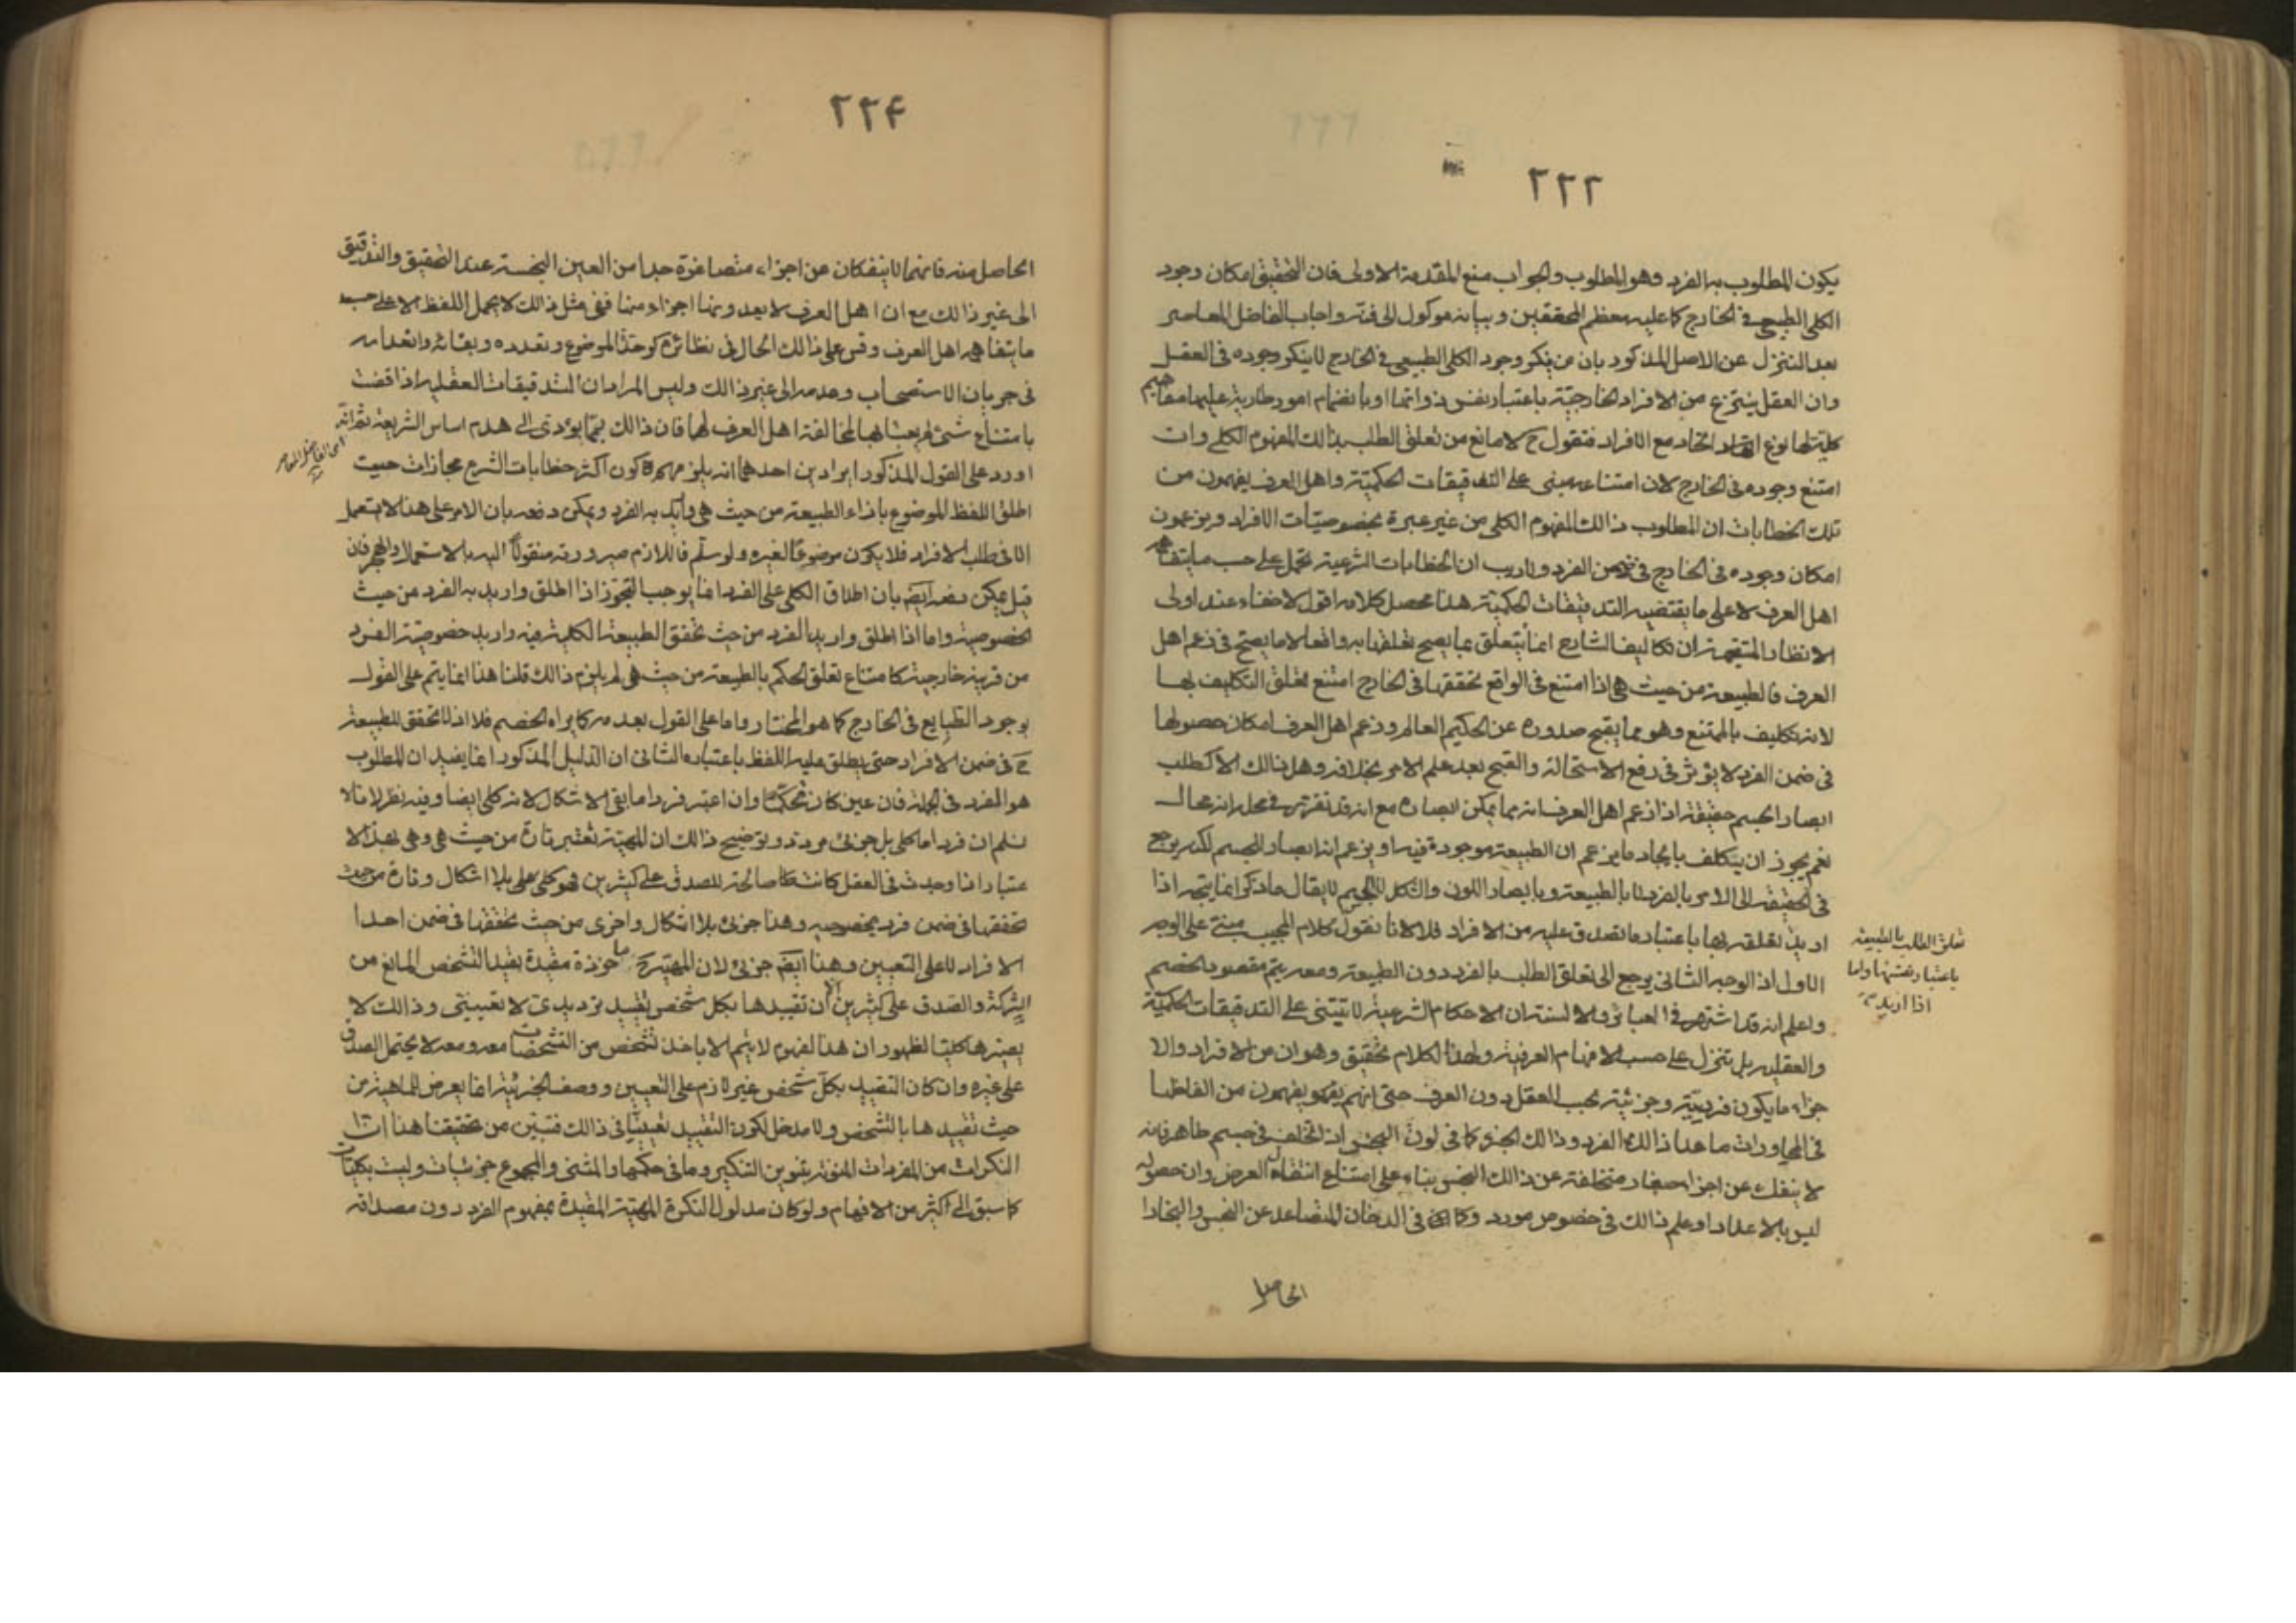 ٢٢٢
يكون المطلوب به الفرد وهو المطلوب والجواب منع المقدمة الاولى فان التحقيق امكان وجود
الكلى الطبيعى فى الخارج كما عليه معظم المحققين وبيانه موكول الى فنه واجاب الفاضل المعاصر
بعد التنزل عن الاصل المذكور بان من ينكر وجود الكلى الطبيعى فى الخارج لا ينكر وجوده فى العقل
وان العقل ينتزع من الافراد الخارجية باعتبار نفس ذواتها او بانضمام امور طارية عليها مفاهيم
كلية لها نوع اتحاد مع الافراد فنقول ح لا مانع من تعلق الطلب بذالك المفهوم الكلى وان
امتنع وجوده فى الخارج لان امتناعه مبنى على التدقيقات الحكمية واهل العرف يفهمون من
تلك الخطابات ان المطلوب ذالك المفهوم الكلى من غير عبرة بخصوصيات الافراد ويزعمون
امكان وجوده فى الخارج فى ضمن الفرد ولا ريب ان الخطابات الشرعية تحمل على حسب ما يتفاهم
اهل العرف لا على ما يقتضيه التدقيقات الحكمية هذا محصل كلامه اقول لا خفاء عند اولى
الانظار المستقيمة ان تكاليف الشارع انما يتعلق بما يصح تعلقها به واقعا لا ما يصح فى زعم اهل
العرف فالطبيعة من حيث هى اذا امتنع فى الواقع تحققها فى الخارج امتنع تعلق التكليف بها
لانه تكليف بالممتنع وهو مما يقبح صدوره عن الحكيم العالم وزعم اهل العرف امكان حصولها
فى ضمن الفرد لا يؤثر فى رفع الاستحالة والقبح بعد علم الامر بخلافه وهل ذالك الا كطلب
ابصار الجسم حقيقة اذا زعم اهل العرف انه مما يمكن ابصاره مع انه قد تقرر فى محله انه محال
نعم يجوز ان يتكلف بايجاد ما يزعم ان الطبيعة موجودة فيه او يزعم انه ابصار للجسم لكنه يرجع
فى الحقيقة الى الامر بالفرد لا بالطبيعة وبابصار اللون والشكل لا الجسم لا يقال ما ذكر انما يتجه اذا
اريد تعلقه بها باعتبار ما تصدق عليه من الافراد فلا لانا نقول كلام المجيب مبنى على الوجه
تعلق الطلب بالطبيعة
باعتبار نفسها واما
اذا اريد
الاول اذ الوجه الثانى يرجع الى تعلق الطلب بالفرد دون الطبيعة ومعه يتم مقصود الخصم
واعلم انه قد اشتهر فى العبائر والالسنة ان الاحكام الشرعية لا تبتنى على التدقيقات الحكمية
والعقلية بل تنزل على حسب الافهام العرفية ولهذا الكلام تحقيق وهو ان من الافراد والا
جزاء ما يكون فرديته وجزئيته بحسب العقل دون العرف حتى انهم يفهمون من الفاظها
فى المحاورات ما عدا ذالك الفرد وذالك الجزء كما فى لون النجس اذا تخلف فى جسم طاهر فانه
لا ينفك عن اجزاء صغار متخلفة عن ذالك النجس بناء على امتناع انتقال العرض وان حصوله
ليس بالاعداد او علم ذالك فى خصوص مورد وكما فى الدخان المتصاعد عن النجس والبخار
الحاصل
٢٢۴
الحاصل منه فانهما لا ينفكان عن اجزاء متصاغرة جدا من العين النجسة عند التحقيق والتدقيق
الى غير ذالك مع ان اهل العرف لا يعدونها اجزاء منها ففى مثل ذالك لا يحمل اللفظ الا على حسب
ما يتفاهمه اهل العرف وقس على ذالك الحال فى نظائره كوحدة الموضوع وتعدده وبقائه وانعدامه
فى جريان الاستصحاب وعدمه الى غير ذالك وليس المراد ان التدقيقات العقلية اذا قضت
بامتناع شئ لم يعبأ بها لمخالفة اهل العرف لها فان ذالك مما يؤدى الى هدم اساس الشريعة ثم انه
اى الفاضل المعاصر
اورد على القول المذكور ايرادين احدهما انه يلزمهم كون اكثر خطابات الشرع مجازات حيث
اطلق اللفظ الموضوع بازاء الطبيعة من حيث هى واريد به الفرد ويمكن دفعه بان الامر على هذا لا يستعمل
الا فى طلب الافراد فلا يكون موضوعا لغيره ولو سلم فاللازم صيرورته منقولا اليه بالاستعمال والهجر فان
قيل يمكن دفعه ايضا بان اطلاق الكلى على الفرد انما يوجب التجوز اذا اطلق واريد به الفرد من حيث
الخصوصية واما اذا اطلق واريد الفرد من حيث تحقق الطبيعة الكلية فيه واريد خصوصية الفرد
من قرينة خارجية كامتناع تعلق الحكم بالطبيعة من حيث هى لم يلزم ذالك قلنا هذا انما يتم على القول
بوجود الطبايع فى الخارج كما هو المختار واما على القول بعدمه كما يراه الخصم فلا اذ لا تحقق للطبيعة
ح فى ضمن الافراد حتى يطلق عليه اللفظ باعتباره الثانى ان الدليل المذكور انما يفيد ان المطلوب
هو الفرد فى الجملة فان عين كان تحكما وان اعتبر فردا ما بقى الاشكال لانه كلى ايضا وفيه نظر لانا لا
نسلم ان فردا ما كلى بل جزئى مردد وتوضيح ذالك ان المهية تعتبر تارة من حيث هى وهى بهذا الا
عتبار اذا وجدت فى العقل كانت صالحة للصدق على كثيرين فهو كلى بلا اشكال وتارة من حيث
تحققها فى ضمن فرد بخصوصه وهذا جزئى بلا اشكال واخرى من حيث تحققها فى ضمن احد
الافراد لا على التعيين وهذا ايضا جزئى لان المهية ح ماخوذة مقيدة بقيد التشخص المانع من
الشركة والصدق على كثيرين الا ان تقييدها بكل شخص تقييد ترديدى لا تعيينى وذالك لا
يصيرها كليا لظهور ان هذا المفهوم لا يتم الا باخذ تشخص من التشخصات معه ومعه لا يحتمل الصدق
على غيره وان كان التقييد بكل شخص غير لازم على التعيين ووصف الجزئية انما يعرض الماهية من
حيث تقييدها بالتشخص ولا مدخل لكون التقييد تعيينيا فى ذالك فتبين من تحقيقنا هذا ان
النكرات من المفردات المنونة بتنوين التنكير وما فى حكمها والمثنى والمجموع جزئيات وليست بكليات
كما سبق الى اكثر من الافهام ولو كان مدلول النكرة المهية المقيدة بمفهوم الفرد دون مصداقه